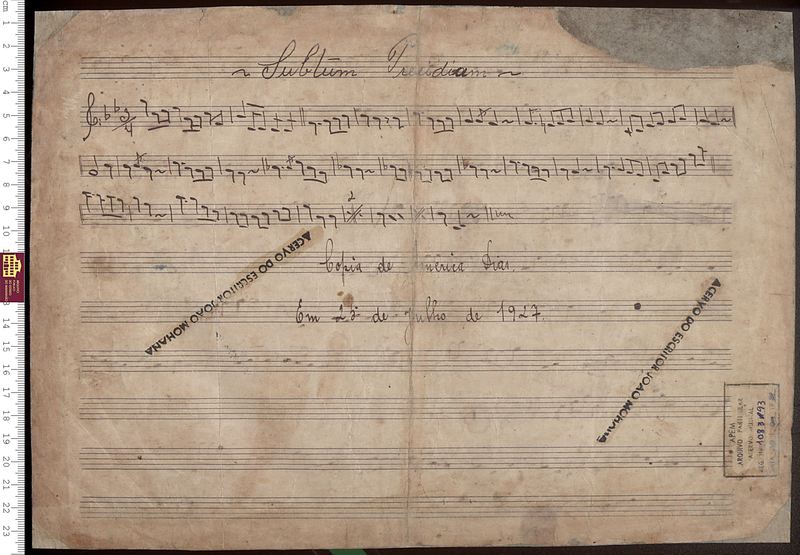 ~ Subtum Precidium ~
2
Copia de América Dias.
Em 25 de Julho de 1927.
ACERVO DO ESCRITOR JOÃO MOHANA
ACERVO DO ESCRITOR JOÃO MOHANA
APEM
ARQUIVO PARTICULAR
ACERVO MUSICAL
cm 1 2 3 4 5 6 7 8 9 10 13 14 15 16 17 18 19 20 21 22 23